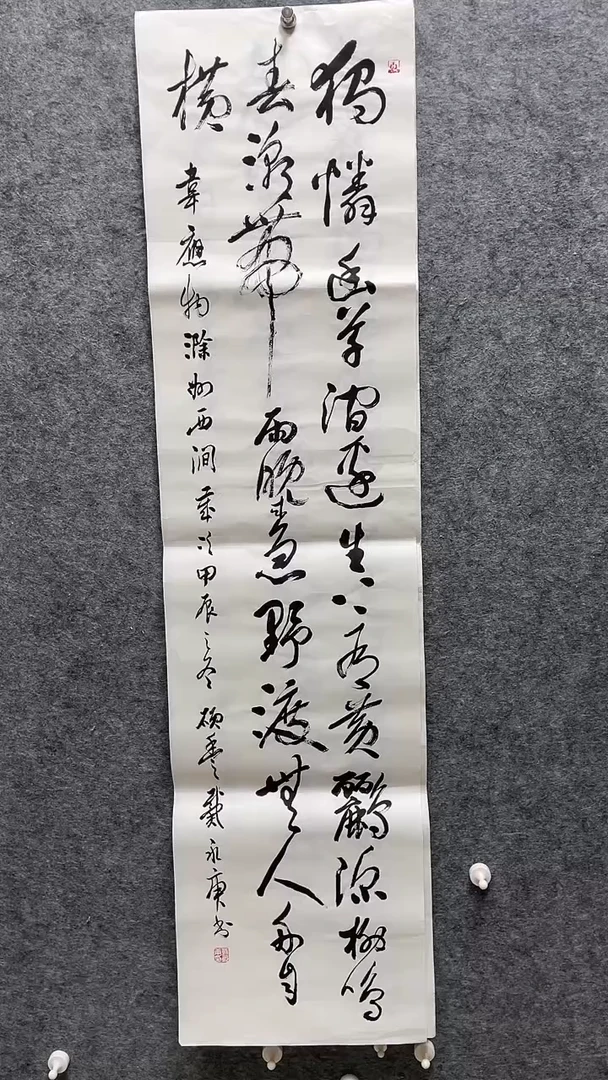 獨憐幽草澗邊生上有黃鸝深樹鳴
春潮帶雨晚來急野渡無人舟自
橫
韋應物滁州西澗歲次甲辰之冬戴永庚書